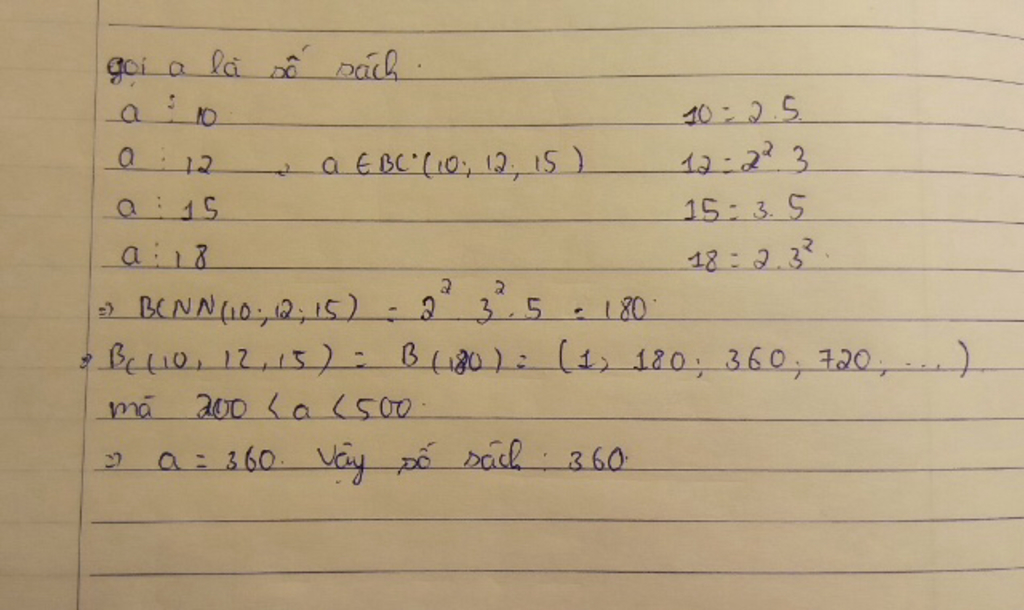 gọi a là số sách.
a ⋮ 10 10 = 2.5
a ⋮ 12 , a ∈ BC (10; 12; 15) 12 = 2² . 3
a ⋮ 15 15 = 3.5
a ⋮ 18 18 = 2.3².
=> BCNN(10; 12; 15) = 2² . 3² . 5 = 180.
=> BC(10, 12, 15) = B(180) = (1, 180; 360; 720; ...)
mà 200 < a < 500.
=> a = 360. Vậy số sách : 360.